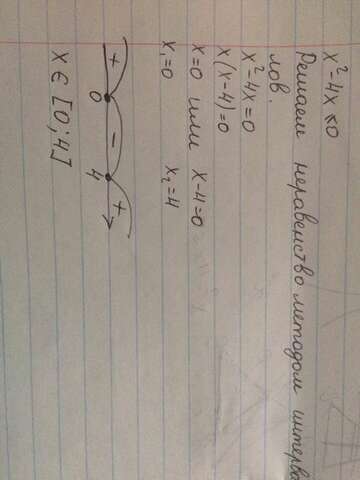 x²-4x≤0
Решаем неравенство методом интерва
лов.
x²-4x=0
x(x-4)=0
x=0 или x-4=0
x₁=0 x₂=4
+ - +
0 4
x ∈ [0;4]